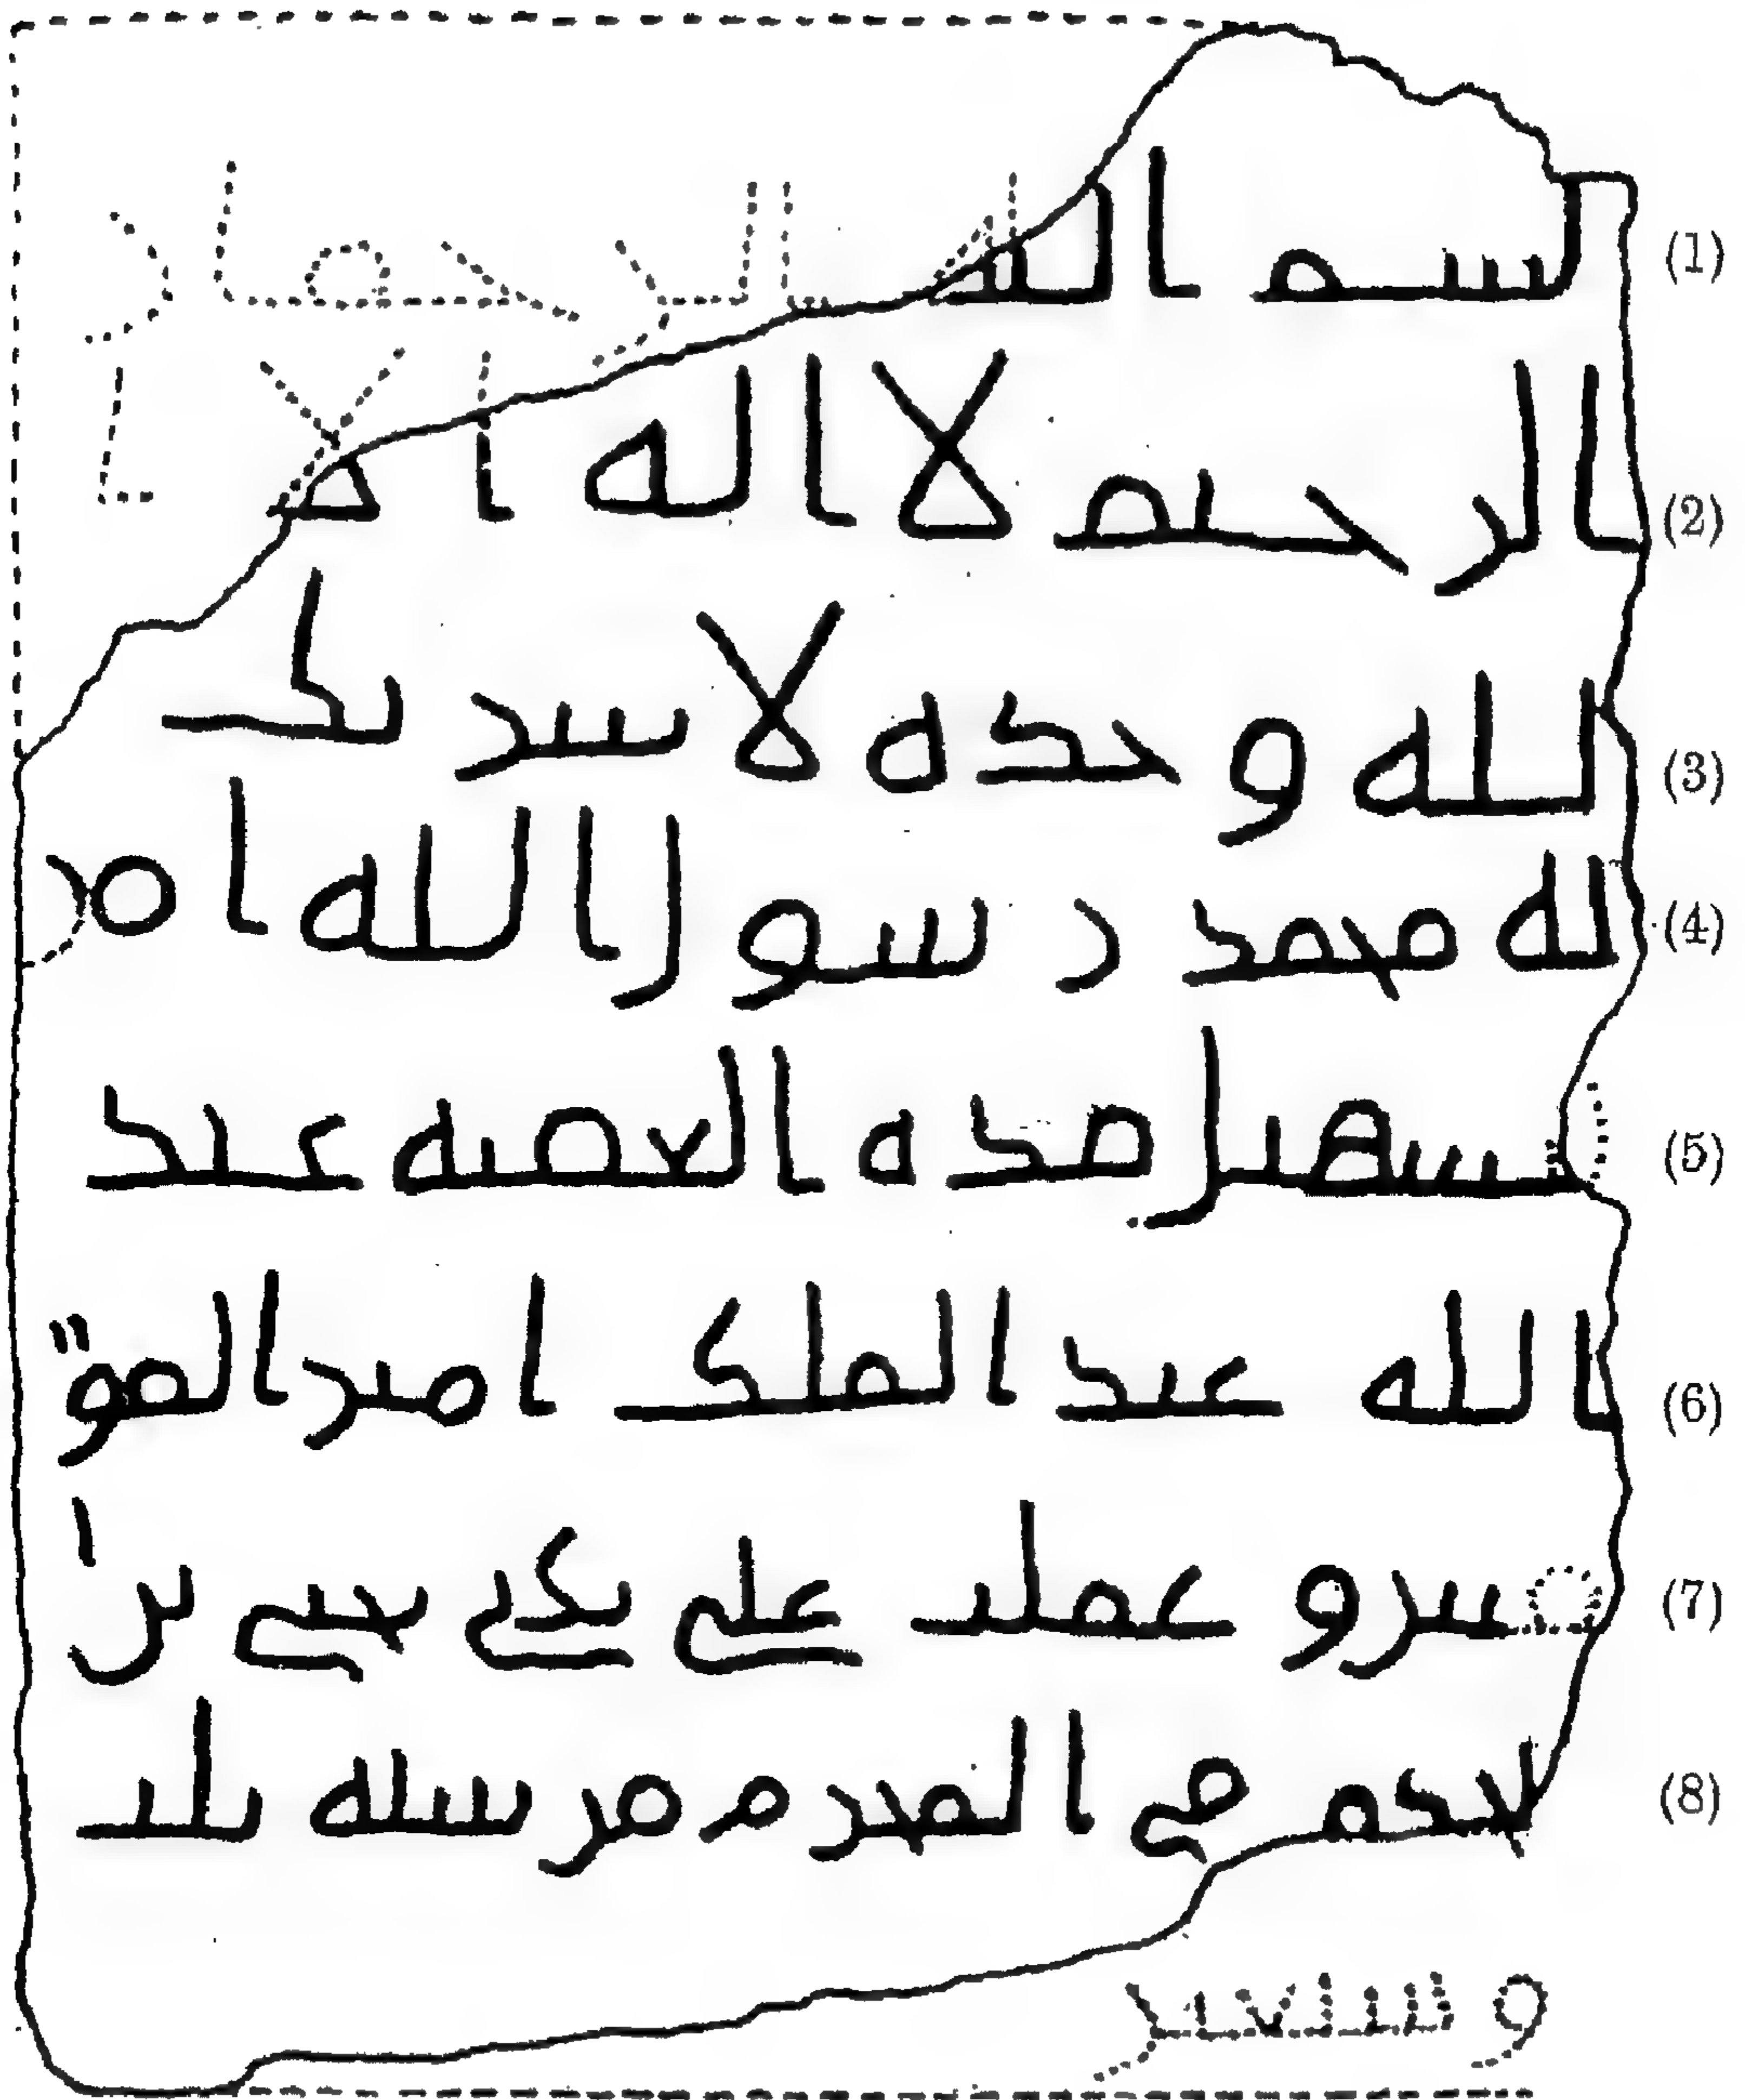 (1) بسم الله الرحمن
(2) الرحيم لا اله الا ا
(3) لله وحده لا شريك
(4) له محمد رسول الله امر
(5) بتسهيل هذه العقبه عبد
(6) الله عبد الملك امير المؤ
(7) منين وعملت على يدي يحيى بن ا
(8) لحكم في المحرم من سنه ثلث
و سبعين